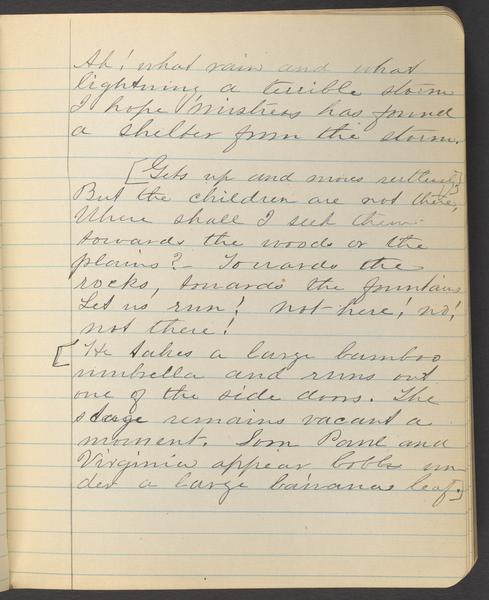 Ah! what rain and what
lightning a terrible storm
I hope Mistress has found
a shelter from the storm.
[Gets up and moves restlessly]
But the children are not there,
Where shall I seek them
towards the woods or the
plains? Towards the
rocks, towards the fountain
Let us run! not here! no!
not there!
[He takes a large bamboo
umbrella and runs out
one of the side doors. The
stage remains vacant a
moment. Soon Paul and
Virginia appear both un
der a large banana leaf.]